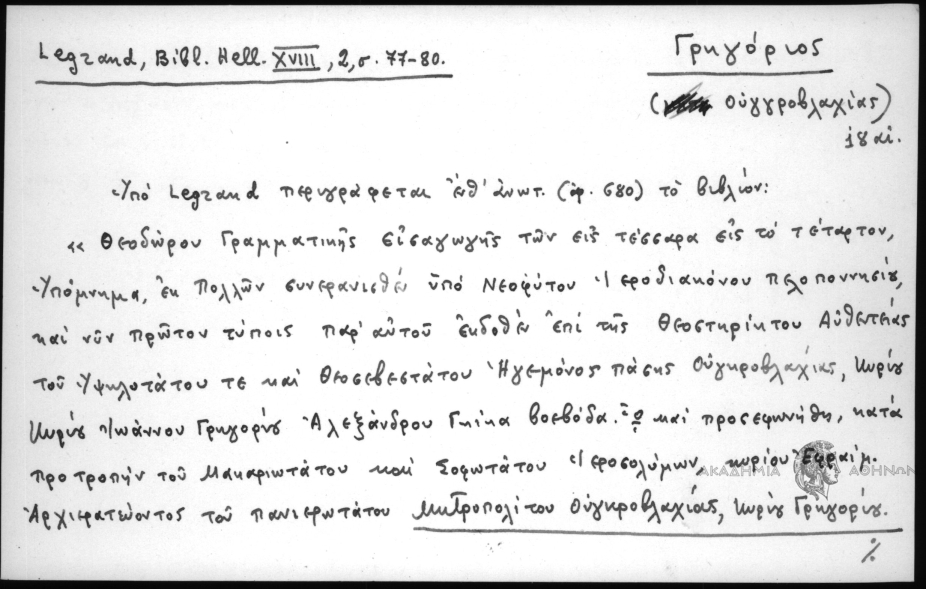 Legrand, Bibl. Hell. XVIII, 2, σ. 77-80.
Γρηγόριος
(Οὑγγροβλαχίας)
18 αἰ.
Ὑπό Legrand περιγράφεται ἐνθ' ἀνωτ. (ἀρ. 680) τὸ βιβλίον:
« Θεοδώρου Γραμματικῆς εἰσαγωγῆς τῶν εἰς τέσσαρα εἰς τό τέταρτον,
Ὑπόμνημα, ἐκ Πολλῶν συνερανισθέν ὑπό Νεοφύτου Ἱεροδιακόνου πελοποννησίου,
καί νῦν πρῶτον τύποις παρ' αὐτοῦ ἐκδοθέν ἐπί τῆς Θεοστηρίκτου Αὐθεντείας
τοῦ Ὑψηλοτάτου τε καί Θεοσεβεστάτου Ἡγεμόνος πάσης Οὑγκροβλαχίας, Κυρίου
Κυρίου Ἰωάννου Γρηγορίου Ἀλεξάνδρου Γκίκα βοεβόδα. ᾧ καί προσεφωνήθη, κατά
προτροπήν τοῦ Μακαριωτάτου καί Σοφωτάτου Ἱεροσολύμων, κυρίου Ἐφραίμ.
Ἀρχιερατεύοντος τοῦ πανιερωτάτου Μητροπολίτου Οὑγκροβλαχίας, Κυρίου Γρηγορίου.
ΑΚΑΔΗΜΙΑ ΑΘΗΝΩΝ
%